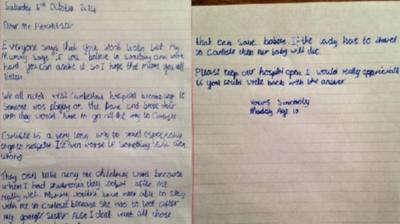 Saturday 6th October 2014
Dear Mr
Everyone says that you wont listen but my
Mummy says "if you believe in something and work
hard you can achieve it so I hope this makes you all
listen.
We all need West Cumberland hospital because if
someone was playing on the and broke their
arm they would have to go all the way to Carlisle.
Carlisle is a very long way to travel especially
to go to hospital. It's even worse if something is
wrong.
They cant take away our childrens ward because
when I had they looked after me
really well. Mummy wouldnt have been able to stay
with me in Carlisle because she has to look after
my younger sister. Also I dont want all those
that can save babies. If the lady has to travel
to Carlisle then her baby will die.
Please keep our hospital open. I would really appreciate it
if you could write back with the answer.
Yours Sincerely
Age 10